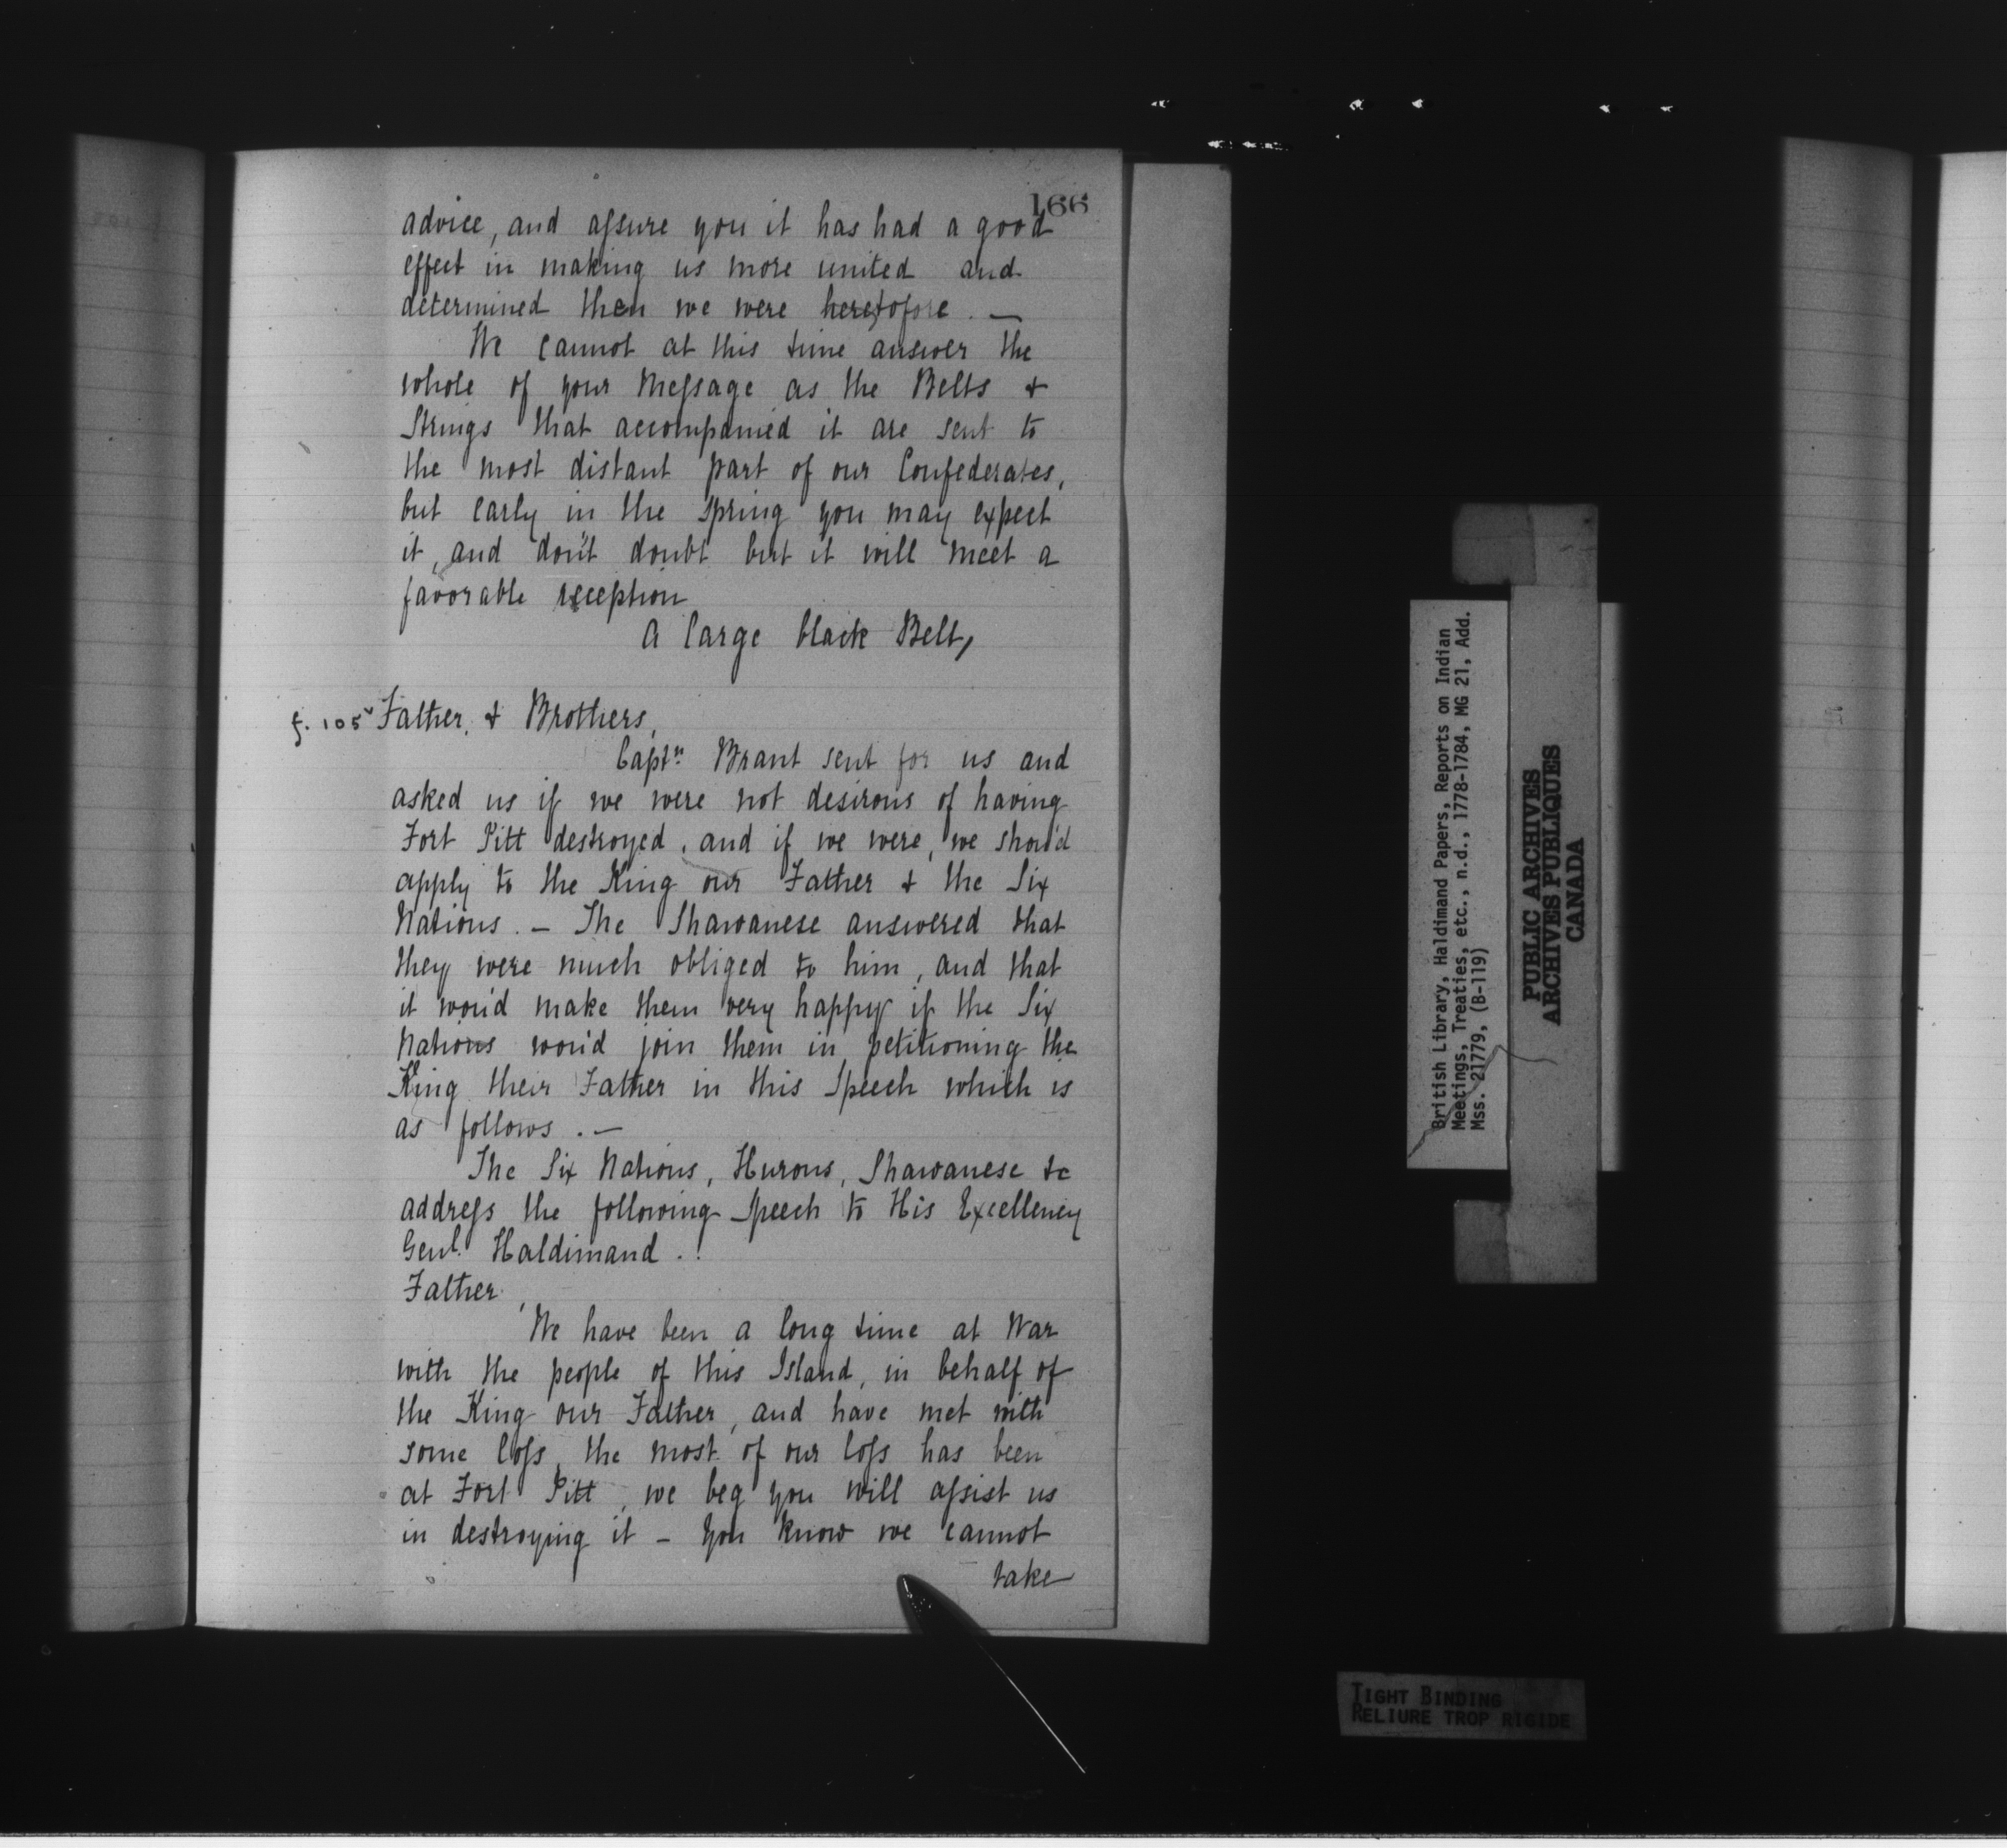 166
advice, and assure you it has had a good
effect in making us more united and
determined then we were heretofore. —
We cannot at this time answer the
whole of your Message as the Belts &
Strings that accompanied it are sent to
the most distant part of our Confederates,
but early in the Spring you may expect
it, and don't doubt but it will meet a
favorable reception
A large black Belt,
f. 105v Father, & Brothers,
Captn. Brant sent for us and
asked us if we were not desirous of having
Fort Pitt destroyed, and if we were, we shou'd
apply to the King our Father & the Six
Nations. — The Shawanese answered that
they were much obliged to him, and that
it wou'd make them very happy if the Six
Nations wou'd join them in petitioning the
King their Father in this Speech which is
as follows. —
The Six Nations, Hurons, Shawanese &c
address the following Speech to His Excellency
Genl. Haldimand.
Father,
We have been a long time at War
with the people of this Island, in behalf of
the King our Father, and have met with
some loss, the most of our loss has been
at Fort Pitt, we beg you will assist us
in destroying it — You know we cannot
take
British Library, Haldimand Papers, Reports on Indian
Meetings, Treaties, etc., n.d., 1778-1784, MG 21, Add.
Mss. 21779, (B-119)
PUBLIC ARCHIVES
ARCHIVES PUBLIQUES
CANADA
TIGHT BINDING
RELIURE TROP RIGIDE